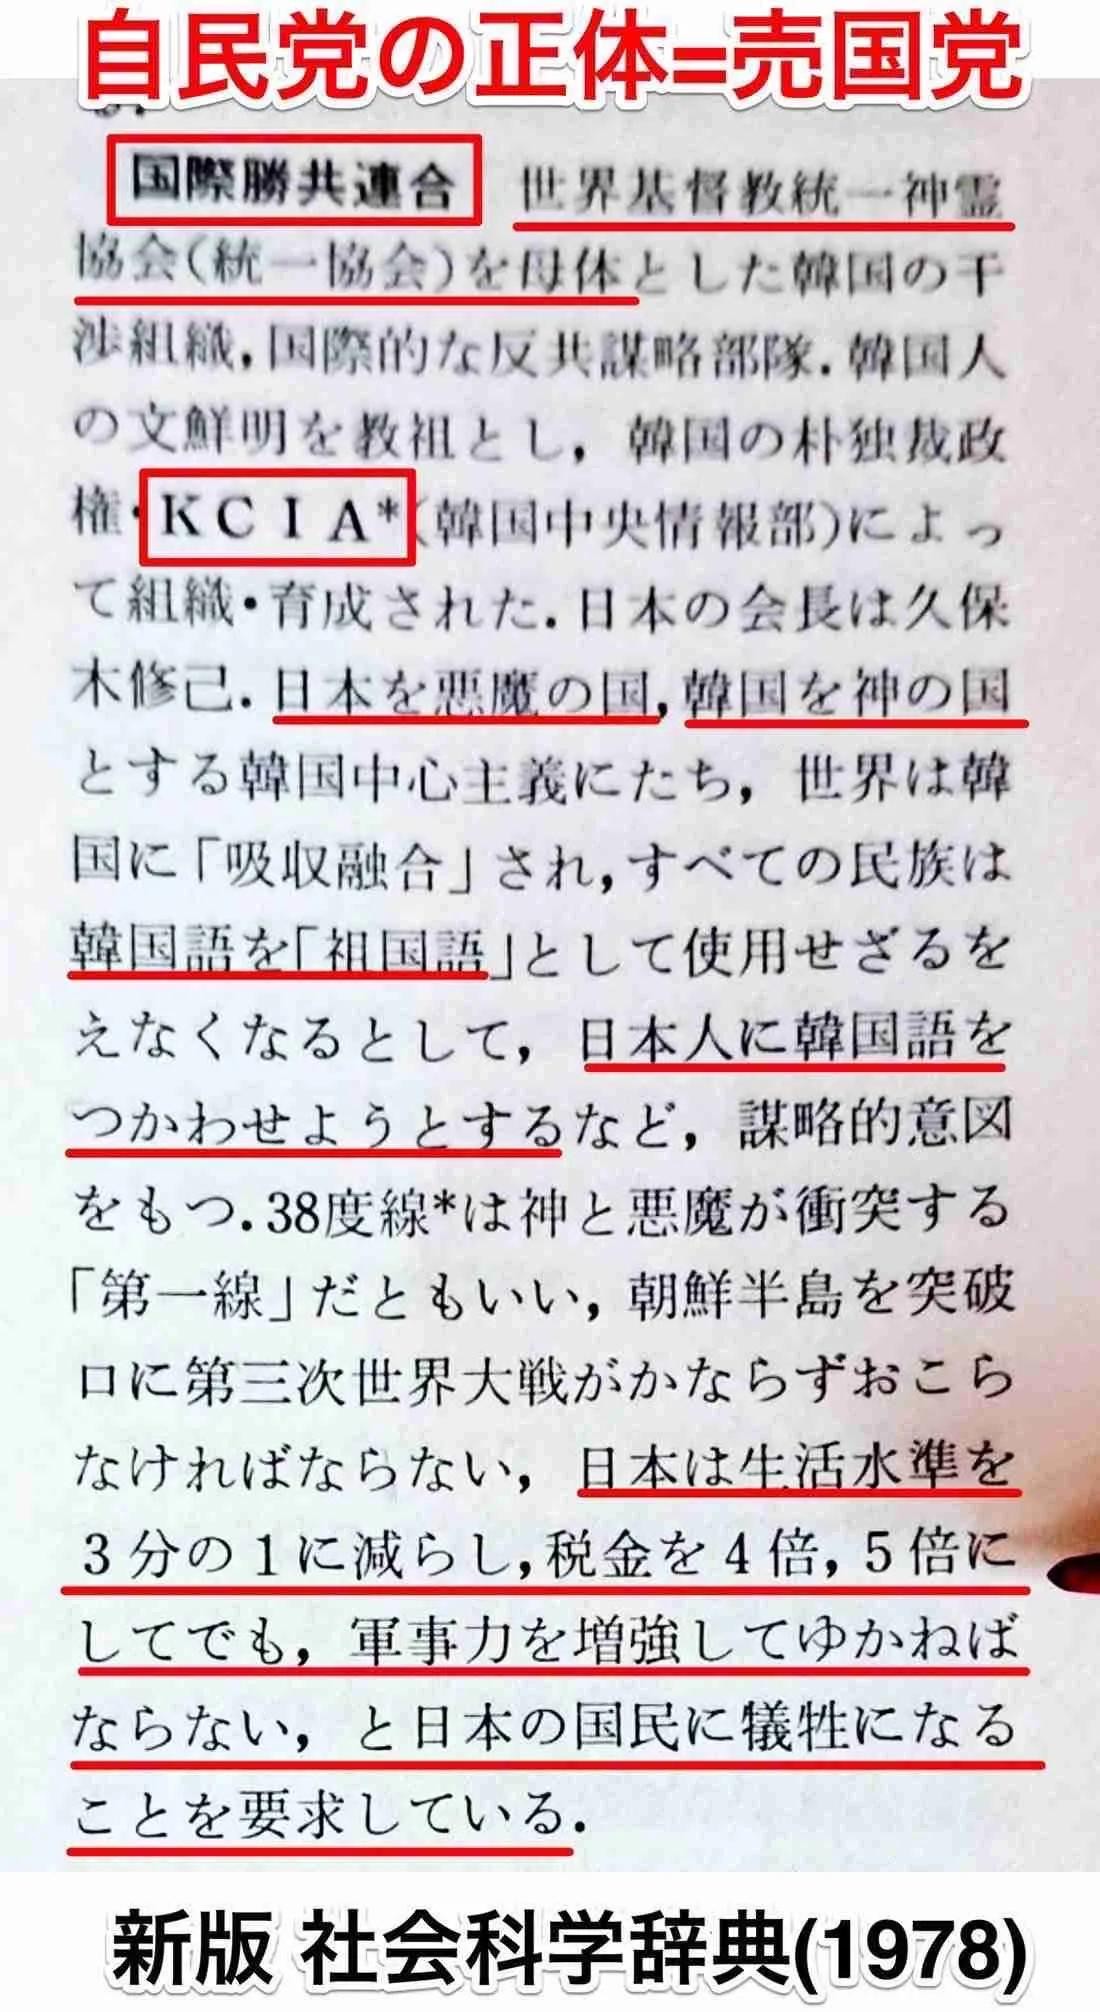 自民党の正体=売国党
国際勝共連合 世界基督教統一神霊
協会(統一協会)を母体とした韓国の干
渉組織,国際的な反共謀略部隊.韓国人
の文鮮明を教祖とし,韓国の朴独裁政
権・KCIA*(韓国中央情報部)によっ
て組織・育成された.日本の会長は久保
木修己.日本を悪魔の国,韓国を神の国
とする韓国中心主義にたち,世界は韓
国に「吸収融合」され,すべての民族は
韓国語を「祖国語」として使用せざるを
えなくなるとして,日本人に韓国語を
つかわせようとするなど,謀略的意図
をもつ.38度線*は神と悪魔が衝突する
「第一線」だともいい,朝鮮半島を突破
口に第三次世界大戦がかならずおこら
なければならない,日本は生活水準を
3分の1に減らし,税金を4倍,5倍に
してでも,軍事力を増強してゆかねば
ならない,と日本の国民に犠牲になる
ことを要求している.
新版 社会科学辞典(1978)